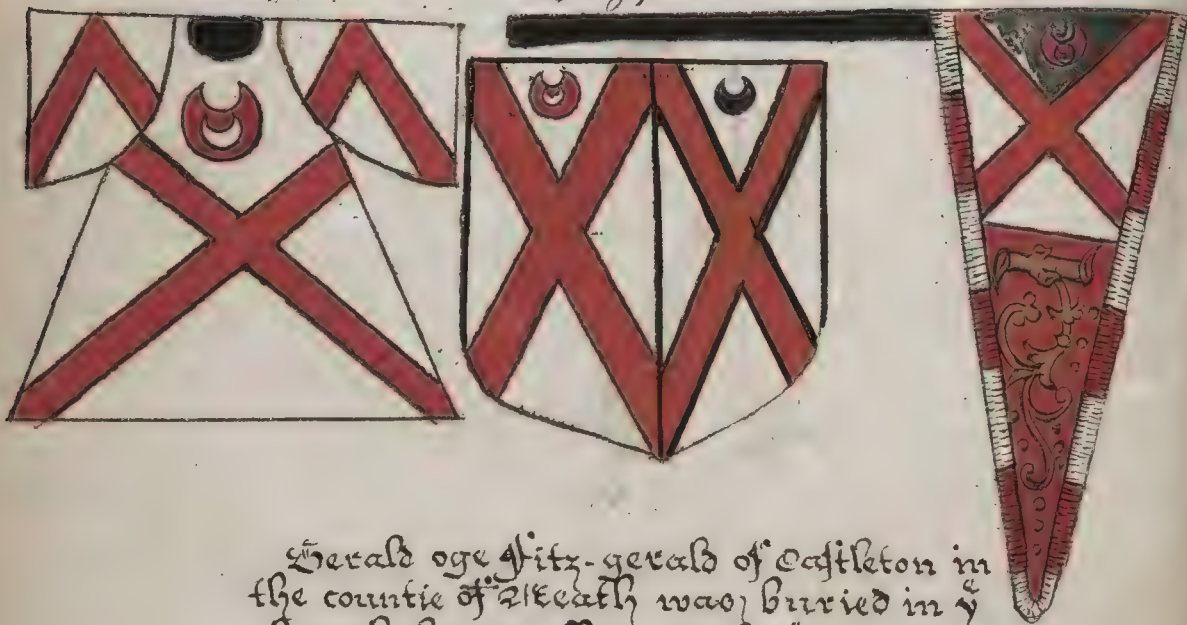 Gerald oge Fitz-gerald of Castleton in
the countie of Meath was buried in yᵉ